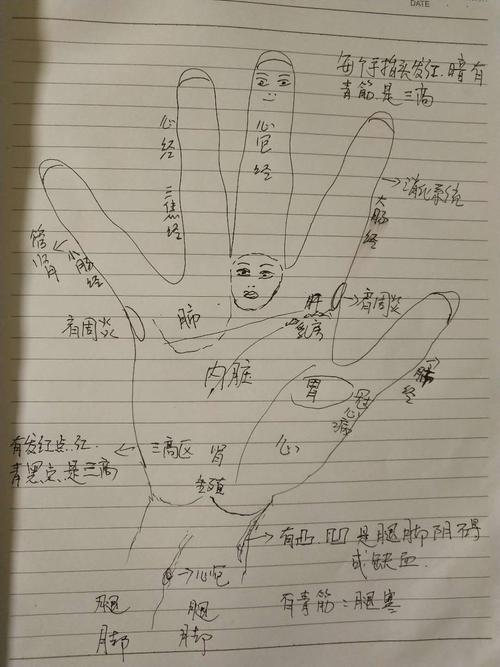 DATE
每个手指头发红.暗有
青筋.是三高
心包经
心经 三焦经
消化系统
大肠经
管肾
小肠经
肩周炎
肺
肝
乳房
肩周炎
内脏
胃
冠心病
肺经
有发红点.红.
青黑点是三高
三高区
肾
心
有凸.凹是腿脚阴不得
或缺血.
心包
有青筋=腿寒
腿脚
腿脚